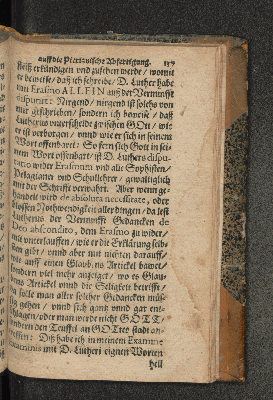 auff die Pierianische Abfertigung. 117
Fleiß erkündigen und zusehen werde / womit
er beweise / daß ich schreibe / D. Luther habe
mit Erasmo ALLEIN auß der Vernunfft
disputiret: Nirgend / nirgend ist solchs von
mir geschrieben / sondern ich beweise / daß
Lutherus unterscheide zwischen GOtt / wie
er ist verborgen / unnd wie er sich in seinem
Wort offenbaret: So fern sich Gott in sei-
nem Wort offenbart / ist D. Luthers dispu-
tatio wider Erasmum und alle Sophisten /
Pelagianer und Schullehrer / gewaltiglich
mit der Schrifft verwahrt. Aber wenn ge-
handelt wird de absoluta necessitate, oder
blossen Nothwendigkeit aller dingen / da lest
Lutherus der Vernunfft Gedancken de
Deo abscondito, dem Erasmo zu wider /
mit unterlauffen / wie er die Erklärung selb-
sten gibt / unnd aber mit nichten darauff /
wie auff einen Glaubens Artickel bawet /
sondern viel mehr anzeiget / wo es Glau-
bens Artickel unnd die Seligkeit betrifft /
da solle man aller solcher Gedancken müs-
sig gehen / unnd sich gantz unnd gar ent-
schlagen / oder man werde nicht GOTT /
sondern den Teuffel an GOttes stadt an-
treffen: Diß habe ich in meinem Examine
Examinis mit D. Lutheri eignen Worten
hell